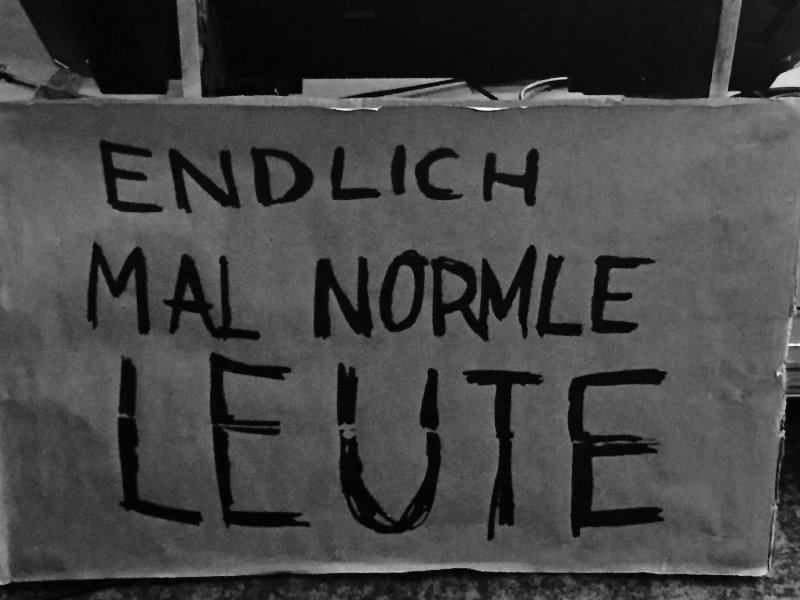 ENDLICH
MAL NORMLE
LEUTE